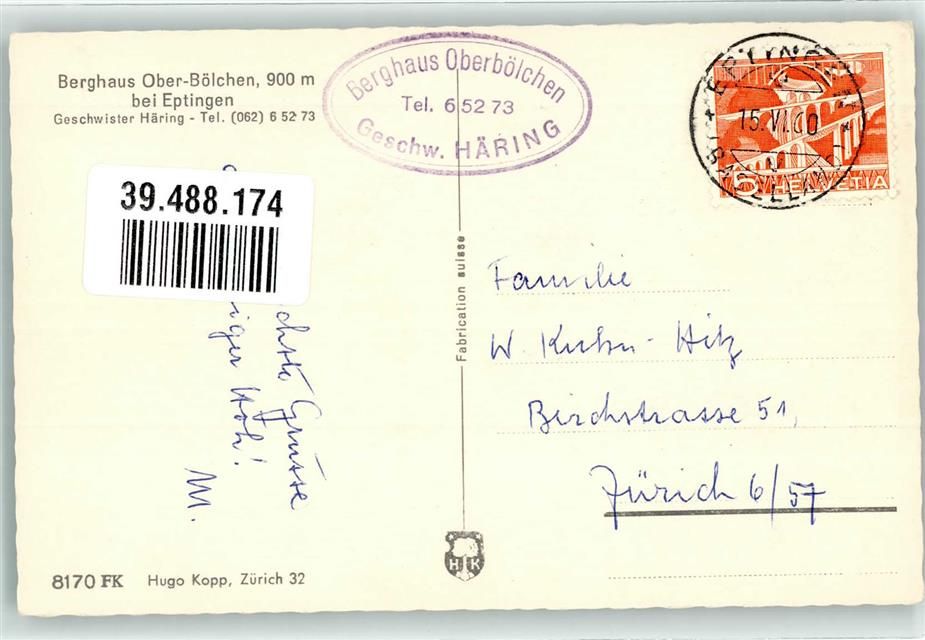 Berghaus Ober-Bölchen, 900 m
bei Eptingen
Geschwister Häring - Tel. (062) 6 52 73
Berghaus Oberbölchen
Tel. 6 52 73
Geschw. HÄRING
EPTINGEN
15.VI.60
BASELLAND
5 HELVETIA
39.488.174
chste Grüsse
iger Höh!
M.
Fabrication suisse
Familie
W Kuhn-Hitz
Birchstrasse 51,
Zürich 6/57
H K
8170 FK Hugo Kopp, Zürich 32